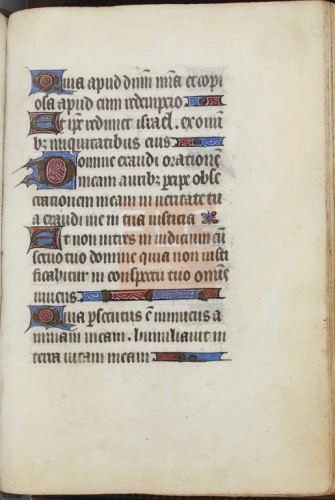 Quia apud dnm mia et copi
osa apud eum redempcio
Et ipe redimet israel. ex omni
bz iniquitatibus eius
Domine exaudi orationem
meam auribz percipe obse
crationem meam in veritate tu
a exaudi me in tua iusticia
Et non intres in iudicium cu
servo tuo domine quia non iusti
ficabitur in conspectu tuo omnis
vivens
Quia persecutus e inimicus a
nimam meam. humiliavit in
terra vitam meam